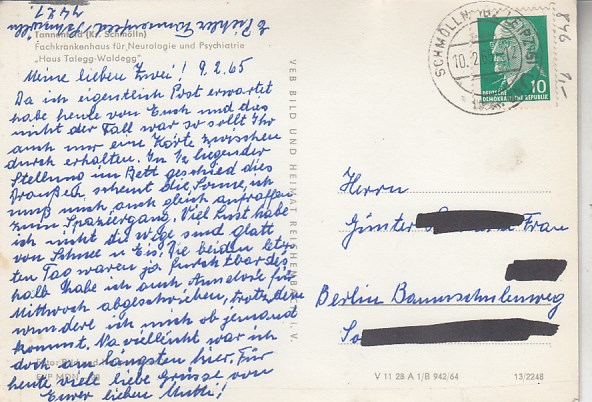 E. Pichler Tannenfeld Schmölln
7421
Tannenfeld (Kr. Schmölln)
Fachkrankenhaus für Neurologie und Psychiatrie
„Haus Talegg-Waldegg"
Meine lieben Zwei! 9.2.65
Da ich eigentlich Post erwartet
habe heute von Euch und das
nicht der Fall war so sollt Ihr
auch nur eine Karte zwischen
durch erhalten. In 1/2 liegender
Stellung im Bett geschied dies
Draußen scheint die Sonne, ich
muß mich auch gleich aufraffen
zum Spaziergang. Viel Lust habe
ich nicht die Wege sind glatt
von Schnee u Eis. Die beiden letz-
ten Tag waren ja furchtbar des
halb habe ich auch Annelose für
Mittwoch abgeschrieben, trotzdem
wundere ich mich ob jemand
kommt. Na vielleicht war ich
doch am längsten hier. Für
heute viele liebe Grüsse von
Eurer lieben Mutti!
VEB BILD UND HEIMAT REICHENBACH i. V.
SCHMÖLLN (BZ LEIPZIG)
10.2.
10
DEUTSCHE
DEMOKRATISCHE REPUBLIK
846 1,-
Herrn
Günter Frau
Berlin Baumschulenweg
V 11 28 A 1/B 942/64
13/2248